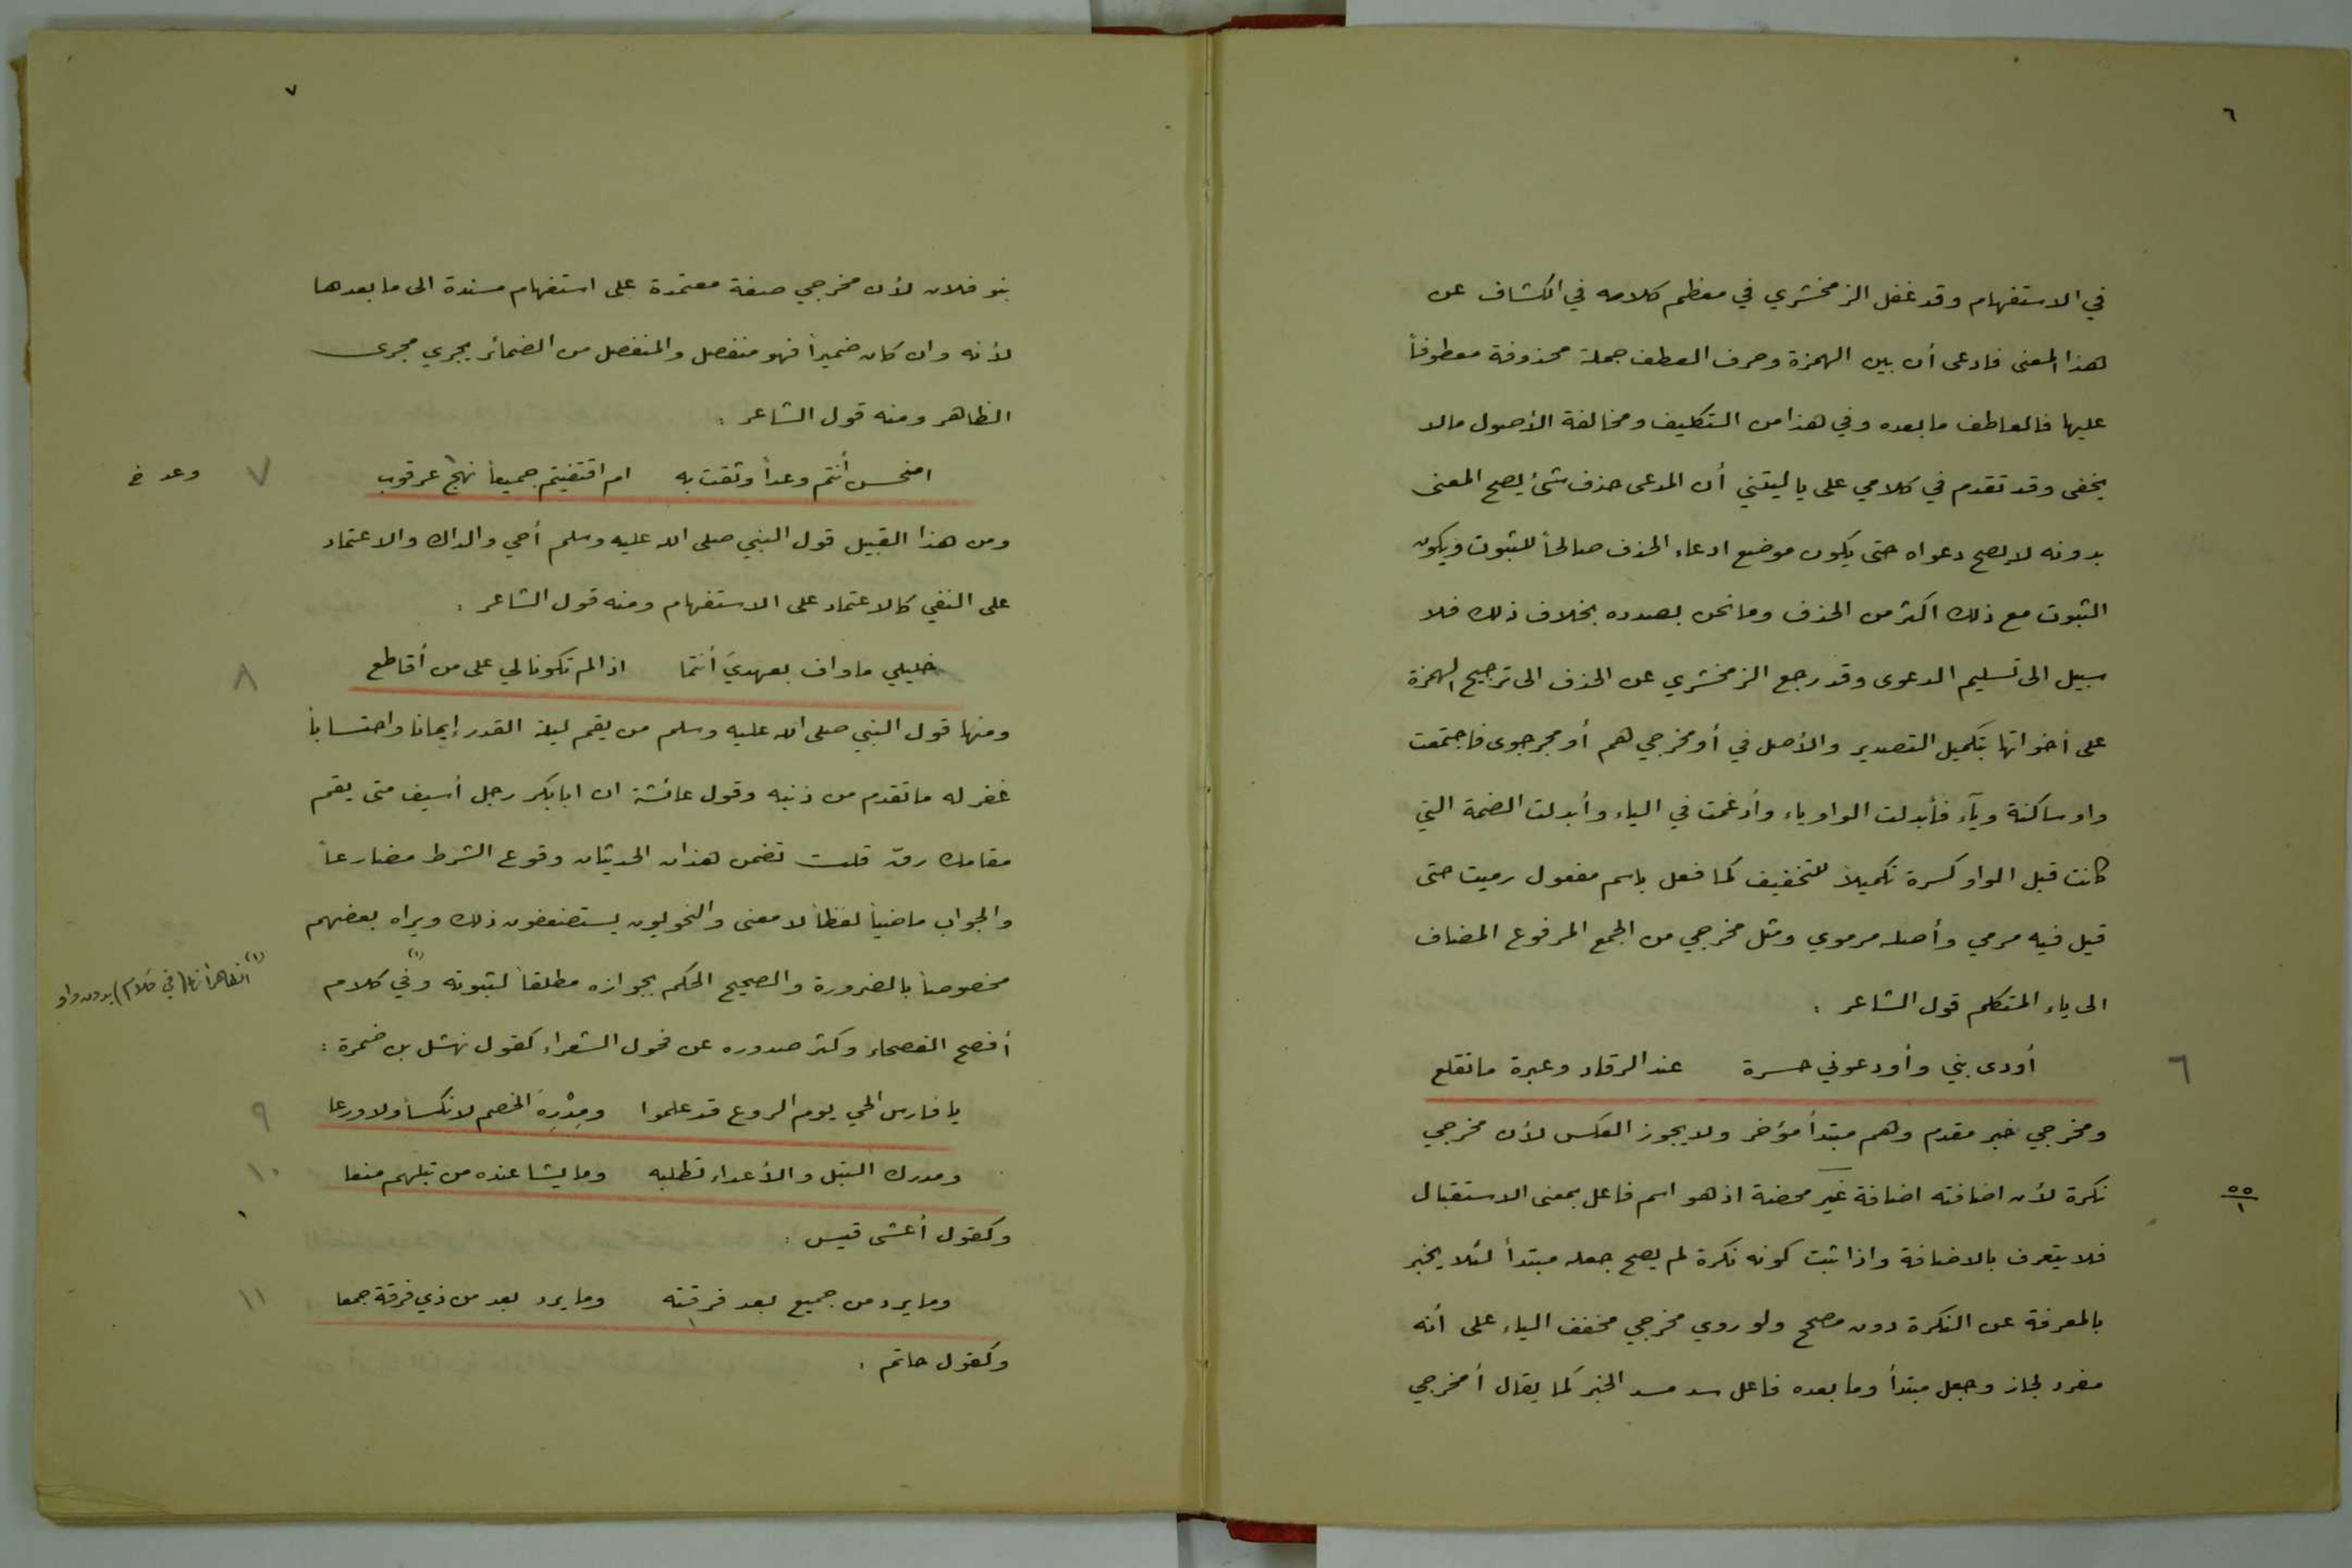 ٦
في الاستفهام وقد غفل الزمخشري في معظم كلامه في الكشاف عن
هذا المعنى فادعى أن بين الهمزة وحرف العطف جملة محذوفة معطوفاً
عليها فالعاطف ما بعده وفي هذا من التكليف ومخالفة الأصول مالا
يخفى وقد تقدم في كلامي على يا ليتني أن المدعى حذف شئ يصح المعنى
بدونه لا يصح دعواه حتى يكون موضع ادعاء الحذف صالحاً للثبوت ويكون
الثبوت مع ذلك اكثر من الحذف وما نحن بصدده بخلاف ذلك فلا
سبيل الى تسليم الدعوى وقد رجع الزمخشري عن الحذف الى ترجيح الهمزة
على أخواتها بتكميل التصدير والأصل في أو مخرجي هم أو مخرجوى فاجتمعت
واو ساكنة وياء فأبدلت الواو ياء وأدغمت في الياء وأبدلت الضمة التي
كانت قبل الواو كسرة تكميلاً للتخفيف كما فعل باسم مفعول رميت حتى
قيل فيه مرمي وأصله مرموي ومثل مخرجي من الجمع المرفوع المضاف
الى ياء المتكلم قول الشاعر :
أودى بني وأودعوني حسرة عند الرقاد وعبرة ما تقلع
٦
ومخرجي خبر مقدم وهم مبتدأ مؤخر ولا يجوز العكس لأن مخرجي
نكرة لأن اضافته اضافة غير محضة اذ هو اسم فاعل بمعنى الاستقبال
٥٥
١
فلا يتعرف بالاضافة واذا ثبت كونه نكرة لم يصح جعله مبتدأ لئلا يخبر
بالمعرفة عن النكرة دون مصحح ولو روي مخرجي مخفف الياء على أنه
مفرد لجاز وجعل مبتدأ وما بعده فاعل سد مسد الخبر كما يقال أمخرجي
٧
بنو فلان لأن مخرجي صفة معتمدة على استفهام مسندة الى ما بعدها
لأنه وان كان ضميراً فهو منفصل والمنفصل من الضمائر يجري مجرى
الظاهر ومنه قول الشاعر :
امنجز أنتم وعداً وثقت به ام اقتفيتم جميعاً نهج عرقوب
٧
وعد خ
ومن هذا القبيل قول النبي صلى الله عليه وسلم أحي والداك والاعتماد
على النفي كالاعتماد على الاستفهام ومنه قول الشاعر :
خليلي ما واف بعهديَ أنتما اذا لم تكونا لي على من أقاطع
٨
ومنها قول النبي صلى الله عليه وسلم من يقم ليلة القدر إيمانا واحتساباً
غفر له ما تقدم من ذنبه وقول عائشة ان ابا بكر رجل أسيف متى يقم
مقامك رق قلت تضمن هذان الحديثان وقوع الشرط مضارعاً
والجواب ماضياً لفظاً لا معنى والنحويون يستضعفون ذلك ويراه بعضهم
مخصوصاً بالضرورة والصحيح الحكم بجوازه مطلقاً لثبوته وفي (١) كلام
(١) الظاهر أنها (في كلام) بدون واو
أفصح الفصحاء وكثر صدوره عن فحول الشعراء كقول نهشل بن ضمرة :
يا فارس الحي يوم الروع قد علموا ومِدْرِهَ الخصم لا نكساً ولا ورعا
٩
ومدرك التبل والأعداء تطلبه وما يشا عنده من تبلهم منعا
١٠
وكقول أعشى قيس :
وما يرد من جميع بعد فرقته وما يرد بعد من ذي فرقة جمعا
١١
وكقول حاتم :